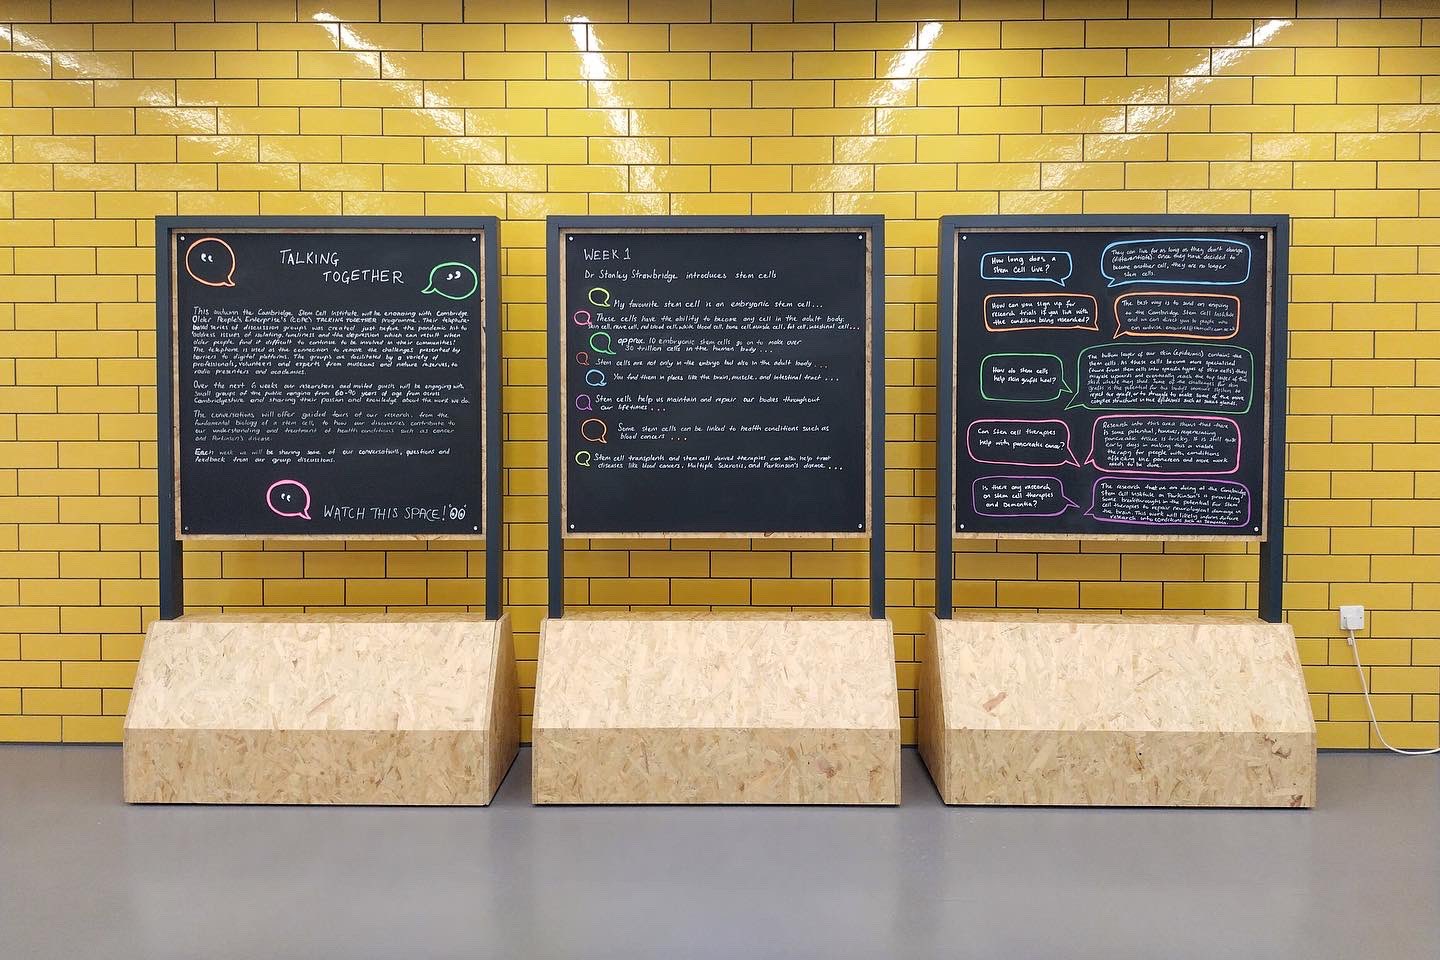 TALKING
TOGETHER
This autumn the Cambridge Stem Cell Institute will be engaging with Cambridge
Older People's Enterprise's (COPE) TALKING TOGETHER programme. Their telephone-
based series of discussion groups was created just before the pandemic hit to
address issues of isolation, loneliness and the depression which can result when
older people find it difficult to continue to be involved in their communities!
The telephone is used as the connection to remove the challenges presented by
barriers to digital platforms. The groups are facilitated by a variety of
professionals, volunteers and experts from museums and nature reserves, to
radio presenters and academics.
Over the next 6 weeks our researchers and invited guests will be engaging with
small groups of the public ranging from 60-90 years of age from across
Cambridgeshire and sharing their passion and knowledge about the work we do.
The conversations will offer guided tours of our research, from the
fundamental biology of a stem cell, to how our discoveries contribute to
our understanding and treatment of health conditions such as cancer
and Parkinson's disease.
Each week we will be sharing some of our conversations, questions and
feedback from our group discussions.
WATCH THIS SPACE!
WEEK 1
Dr Stanley Strawbridge introduces stem cells
My favourite stem cell is an embryonic stem cell...
These cells have the ability to become any cell in the adult body:
skin cell, nerve cell, red blood cell, white blood cell, bone cell, muscle cell, fat cell, intestinal cell...
approx. 10 embryonic stem cells go on to make over
30 trillion cells in the human body ...
Stem cells are not only in the embryo but also in the adult body...
You find them in places like the brain, muscle, and intestinal tract ....
Stem cells help us maintain and repair our bodies throughout
our lifetimes ...
Some stem cells can be linked to health conditions such as
blood cancers ...
Stem cell transplants and stem cell derived therapies can also help treat
diseases like blood cancers, Multiple Sclerosis, and Parkinson's disease ...
How long does a
stem cell live?
They can live for as long as they don't change
(differentiate). Once they have decided to
become another cell, they are no longer
stem cells.
How can you sign up for
research trials if you live with
the condition being researched?
The best way is to send an enquiry
to the Cambridge Stem Cell Institute
and we can direct you to people who
can advise
How do stem cells
help skin grafts heal?
The bottom layer of our skin (epidermis) contains the
stem cells. As these cells become more specialised
(turns from stem cells into specific types of skin cells) they
migrate upwards and eventually reach the top layer of the
skin where they shed. Some of the challenges for skin
grafts is the potential for the body's immune system to
reject the graft, or to struggle to make some of the more
complex structures in the epidermis such as sweat glands.
Can stem cell therapies
help with pancreatic cancer?
Research into this area shows that there
is some potential, however, regenerating
pancreatic tissue is tricky. It is still quite
early days in making this a viable
therapy for people with conditions
affecting the pancreas and more work
needs to be done.
Is there any research
on stem cell therapies
and Dementia?
The research that we are doing at the Cambridge
Stem Cell Institute on Parkinson's is providing
some breakthroughs in the potential for stem
cell therapies to repair neurological damage in
the brain. This work will likely inform future
research into conditions such as Dementia.